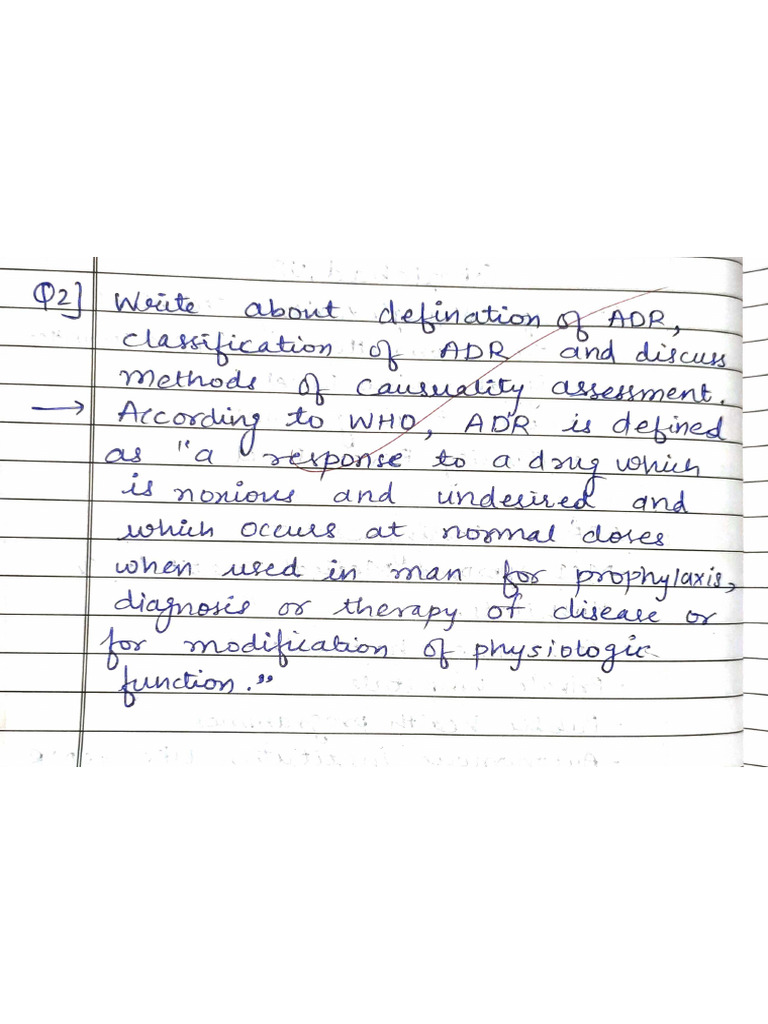 Q2] Write about defination of ADR,
classification of ADR and discuss
methods of causuality assessment.
→ According to WHO, ADR is defined
as "a response to a drug which
is noxious and undesired and
which occurs at normal doses
when used in man for prophylaxis,
diagnosis or therapy of disease or
for modification of physiologic
function."